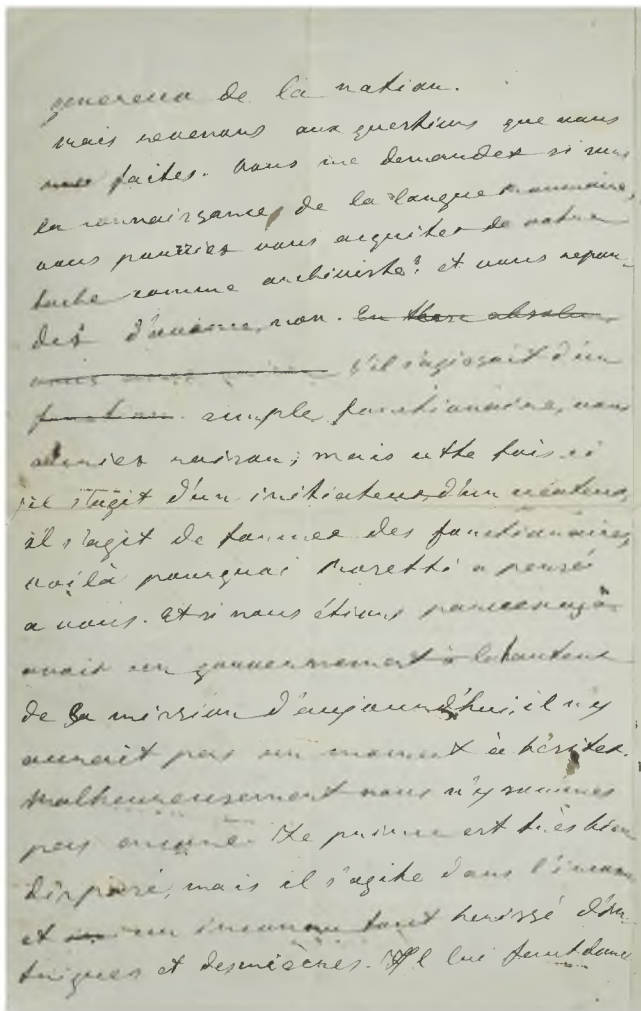 genereux de la nation.
Mais revenons aux questions que vous
me faites. Vous me demandez si sans
la connaissance de la langue roumaine,
vous pourriez vous acquiter de votre
tache comme archiviste? et vous repon-
dez d'avance, non. En these absolue
vous avez s'il s'agissait d'un
fonction simple fonctionaire, vous
auriez raison; mais cette fois ci
il s'agit d'un initiateur, d'un créateur,
il s'agit de former des fonctionaires,
voilà pourquoi Moretti a pensé
a vous. Et si nous étions parvenus à
avoir un gouvernement à la hauteur
de sa mission d'aujourd'hui, il n'y
aurait pas un moment à hésiter.
Malheureusement nous n'y sommes
pas encore. Le prince est très bien
disposé, mais il s'agite dans l'inconnu
et un inconnu tout herissé d'in-
trigues et de Il lui faut donc